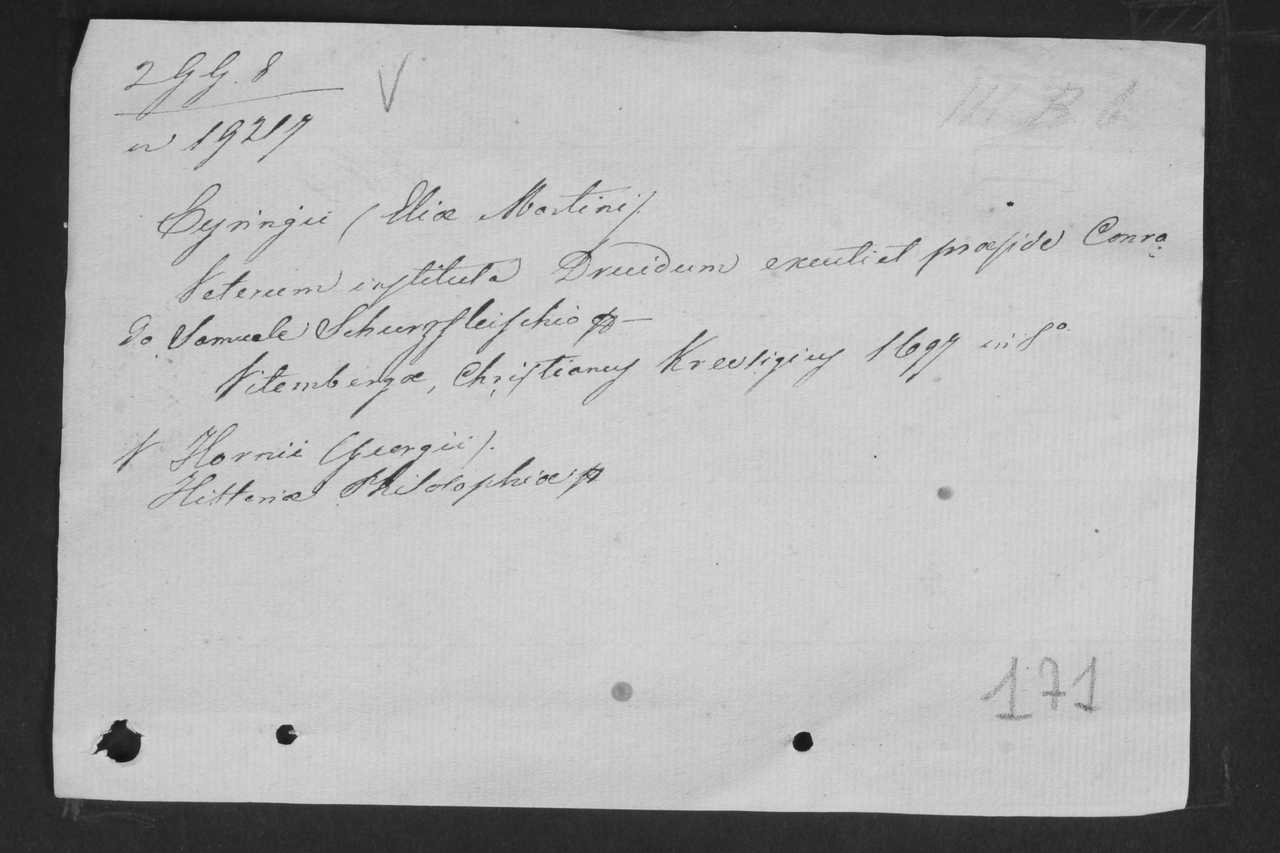 2 GG. 8 V
III B b
n 19217
Eyringii (Eliæ Martini).
Veterum instituta Druidum excutiet præside Conra:
do Samuele Schurzfleischio
Vitembergæ, Christianus Kreusigius 1697 in 8º
V Hornii (Georgii).
Historiæ Philosophiæ
171